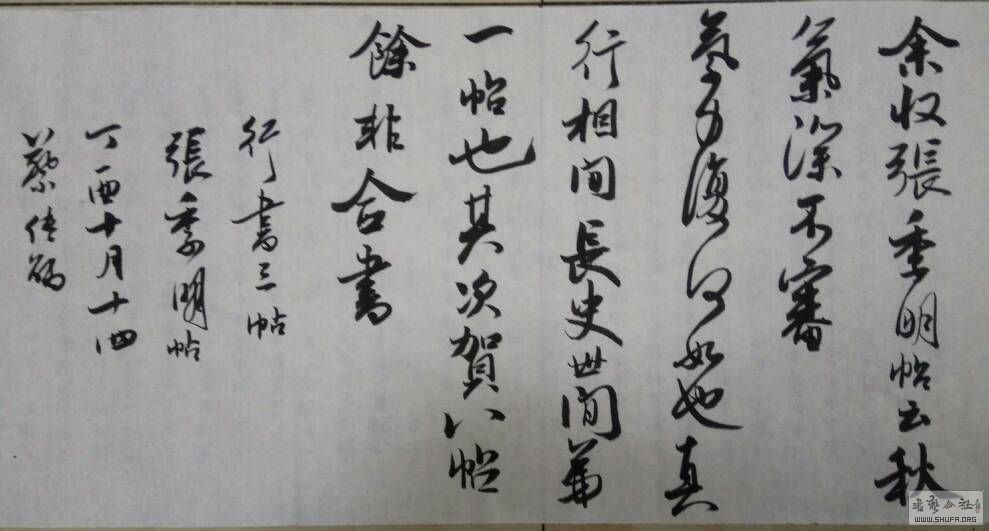 余收張季明帖云秋
氣深不審
氣力復何如也真
行相间長史世间苐
一帖也其次賀八帖
餘非合書
行書三帖
張季明帖
丁酉十月十四
蔡传
書藝公社
WWW.SHUFA.ORG